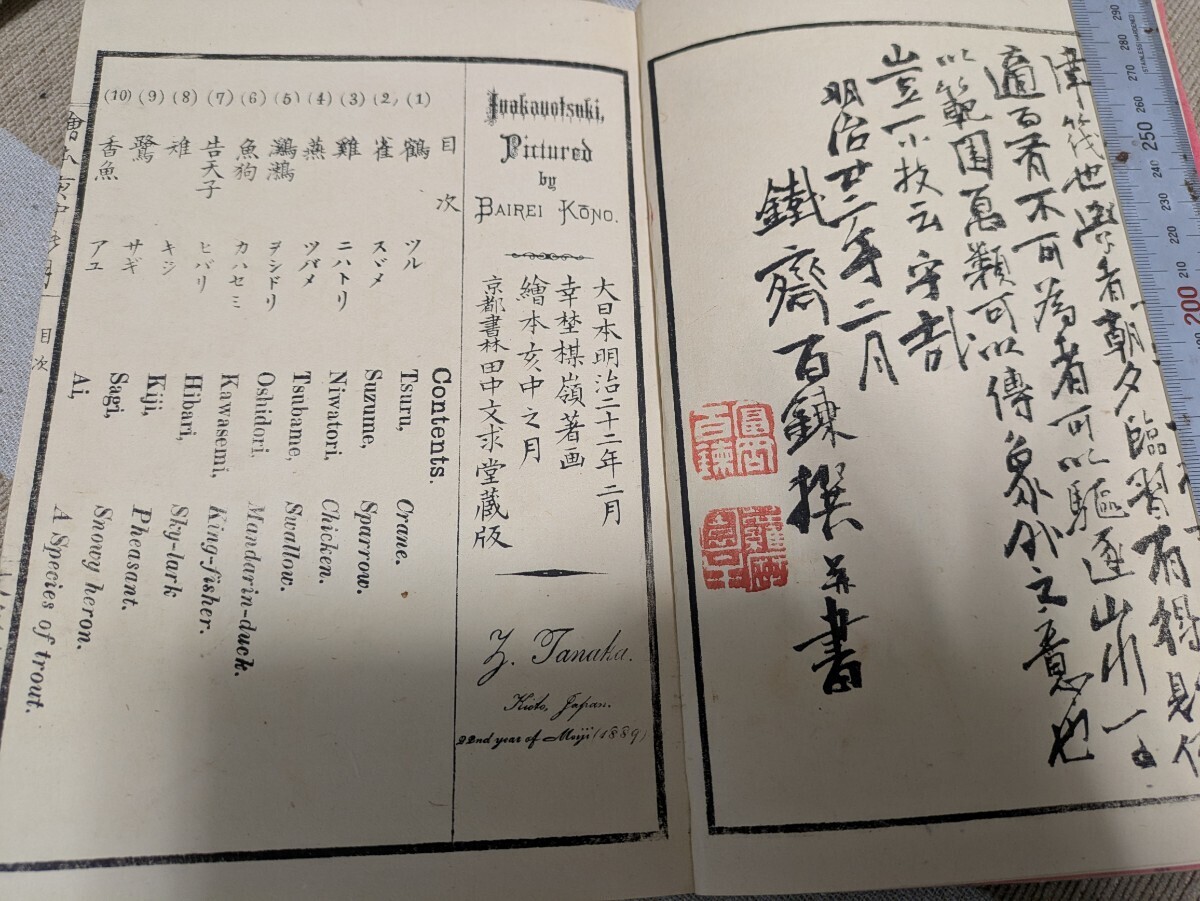 適百者不可為者可以驅逐山川一
以範圍萬類可以傳象外之意也
豈一小技云乎哉
明治廿二年二月
鐵齋百鍊撰并書
富岡百鍊
Inakanotsuki,
Pictured
by
BAIREI KŌNO.
大日本明治二十二年二月
幸埜楳嶺著画
繪本亥中之月
京都書林田中文求堂蔵版
Z. Tanaka.
Kioto, Japan.
22nd year of Meiji (1889)
目次
Contents.
(1) 鶴 ツル Tsuru, Crane.
(2) 雀 スヾメ Suzume, Sparrow.
(3) 雞 ニハトリ Niwatori, Chicken.
(4) 燕 ツバメ Tsubame, Swallow.
(5) 鸂鷘 ヲシドリ Oshidori, Mandarin-duck.
(6) 魚狗 カハセミ Kawasemi, King-fisher.
(7) 告天子 ヒバリ Hibari, Sky-lark
(8) 雉 キジ Kiji, Pheasant.
(9) 鷺 サギ Sagi, Snowy heron.
(10) 香魚 アユ Ai, A Species of trout.
目次
250
200
290
280
270
260
240
230
220
210
190
180
170
160
STAINLESS HARDENED